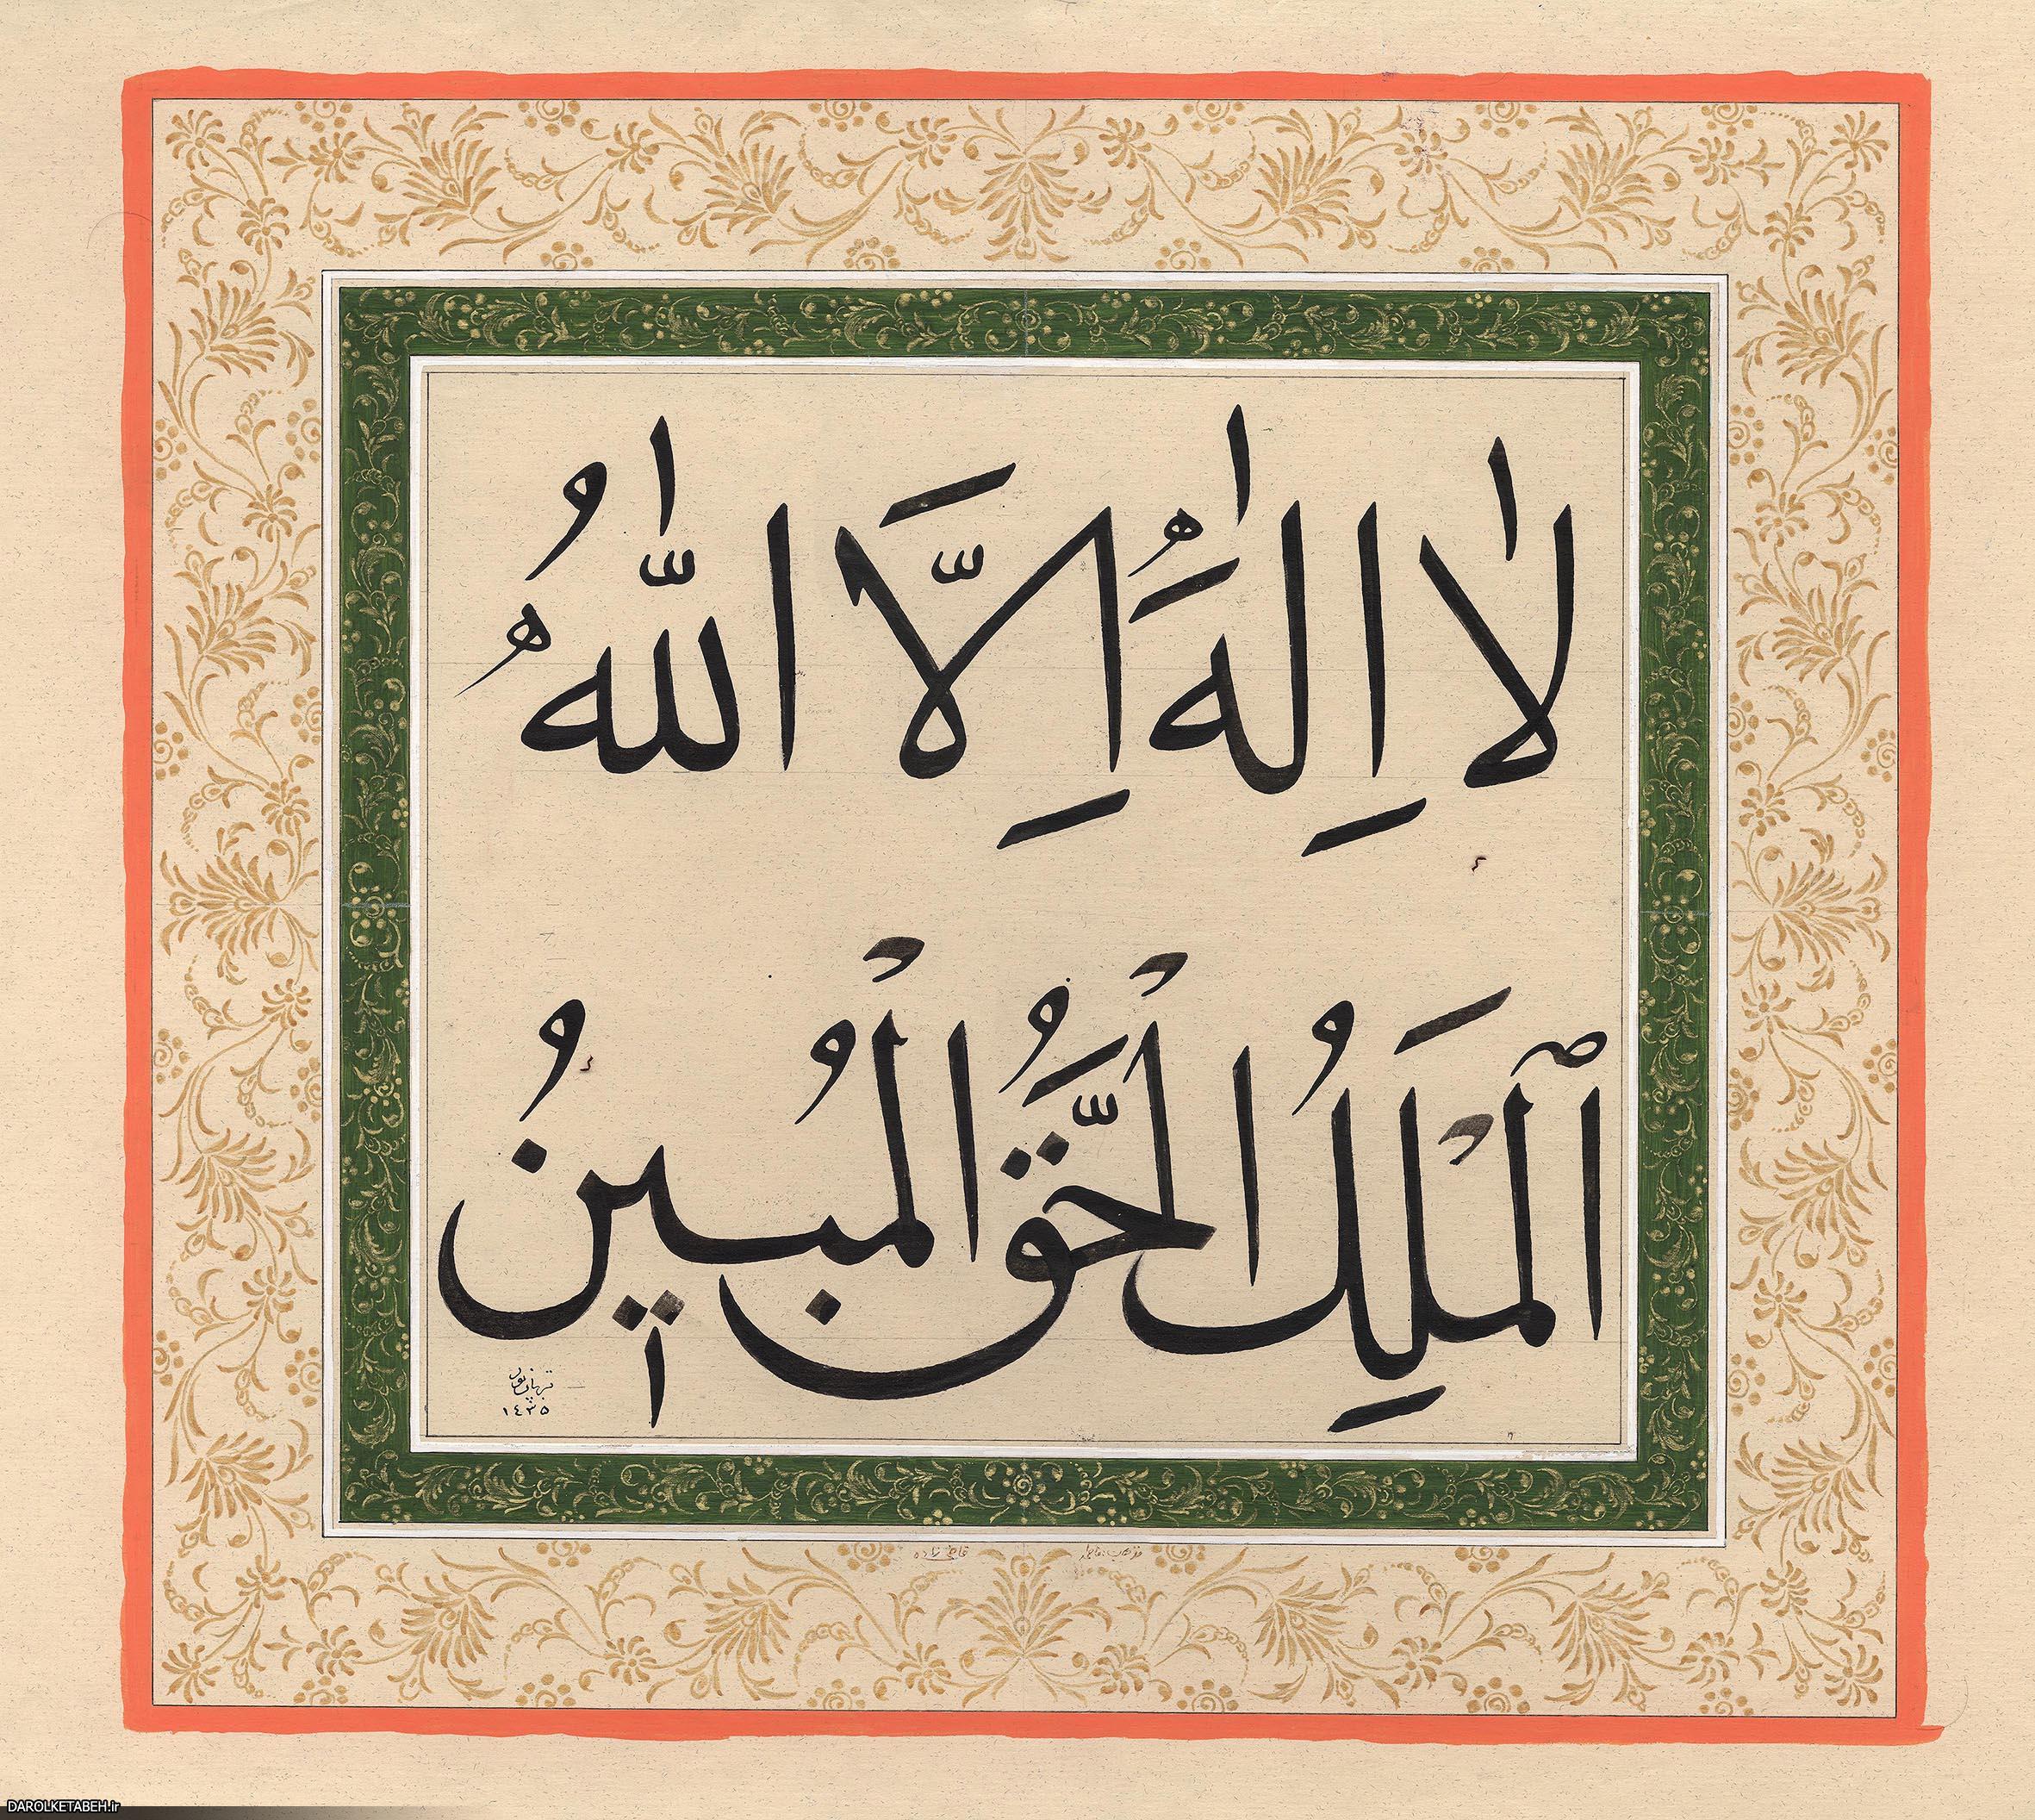 لَا اِلٰهَ اِلَّا اللّٰهُ
ٱلْمَلِكُ الْحَقُّ الْمُبِينُ
١٤٣٥
DAROLKETABEH.ir